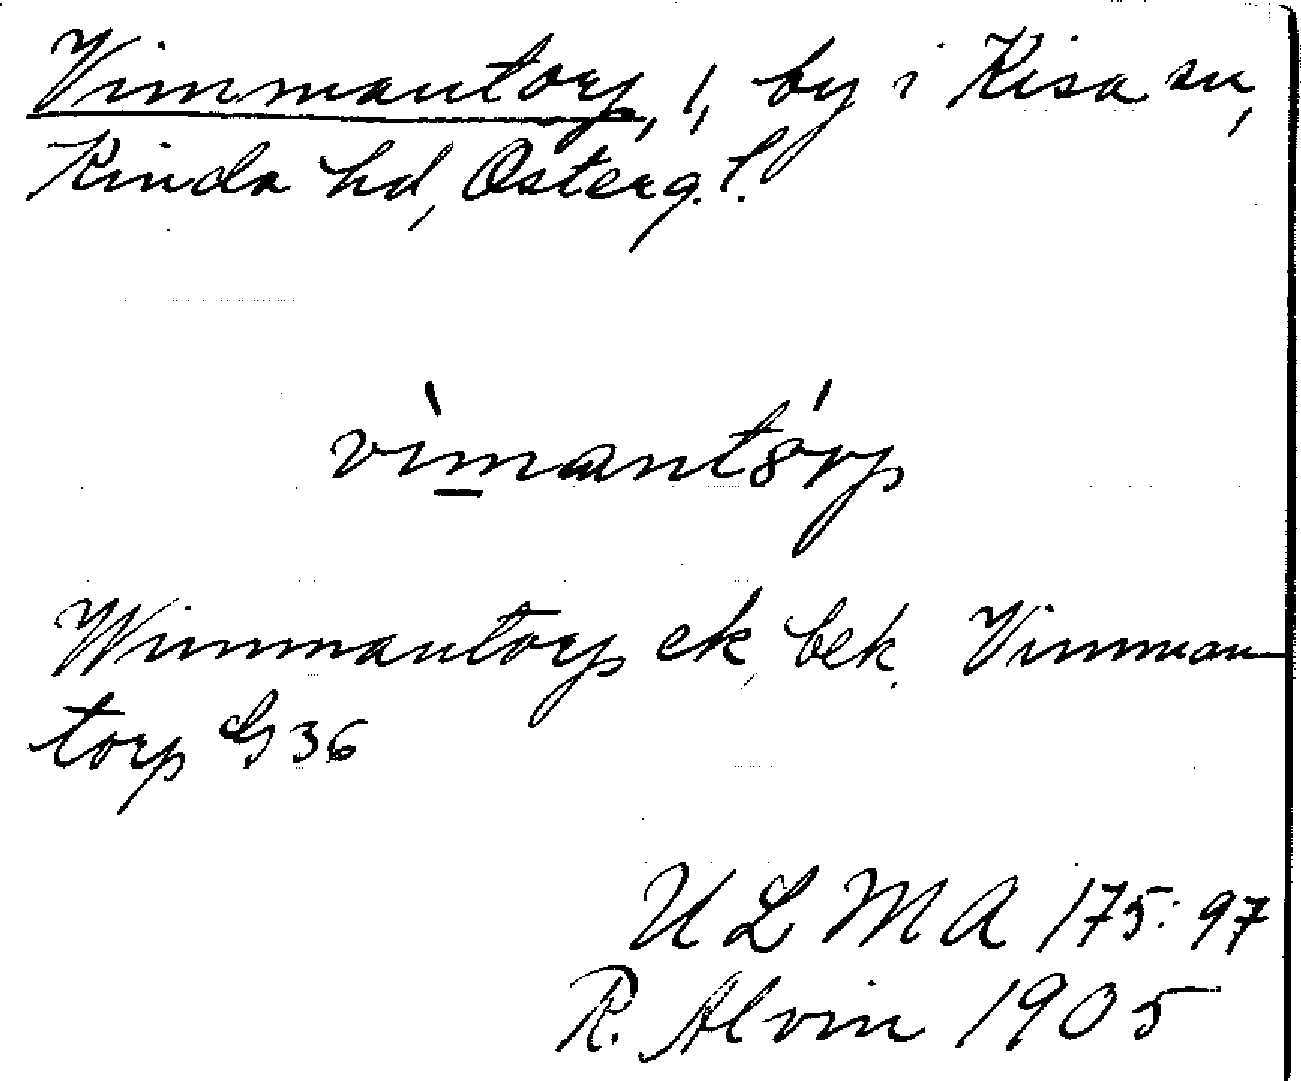 Vimmantorp, 1, by i Kisa sn,
Kinda hd, Österg. l.
vìmantórp
Wimmantorp ek, bek. Vimman-
torp G 36
ULMA 175:97
R. Alvin 1905